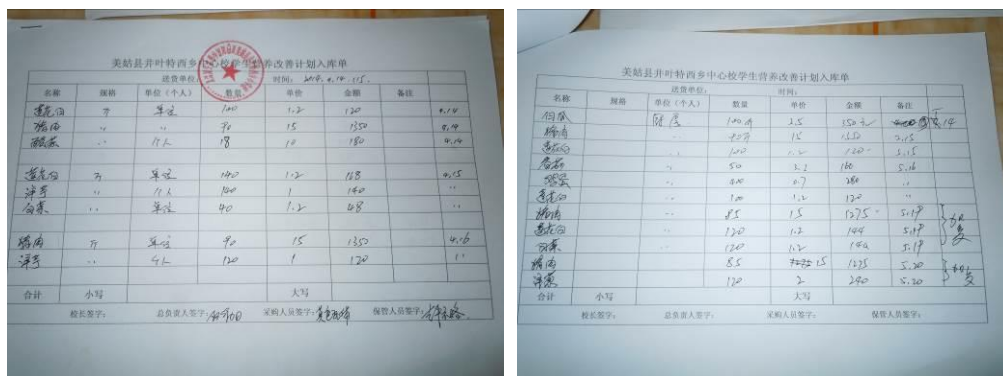 美姑县井叶特西乡中心校学生营养改善计划入库单
送货单位: 时间: 2014.4.14-15.
名称 规格 单位(个人) 数量 单价 金额 备注
莲花白 斤 100 1.2 120 4.14
猪肉 〃 〃 90 15 1350 4.14
酸菜 〃 个人 18 10 180 4.14
莲花白 斤 140 1.2 168 4.15
洋芋 〃 个人 140 1 140 〃
白菜 〃 40 1.2 48 〃
猪肉 斤 90 15 1350 4.16
洋芋 〃 个人 120 1 120 〃
合计 小写 大写
校长签字: 总负责人签字: 采购人员签字: 保管人员签字:
美姑县井叶特西乡中心校学生营养改善计划入库单
送货单位: 时间:
名称 规格 单位(个人) 数量 单价 金额 备注
100斤 3.5 350元 5.14
猪肉 90斤 15 1350
莲花白 100 1.2 120 5.15
50 160 5.16
400 0.7 280 〃
莲花白 100 1.2 120 〃
猪肉 85 15 1275 5.19
莲花白 120 1.2 144 5.19
白菜 120 1.2 144 5.19
猪肉 85 15 1275 5.20
120 2 240 5.20
合计 小写 大写
校长签字: 总负责人签字: 采购人员签字: 保管人员签字: